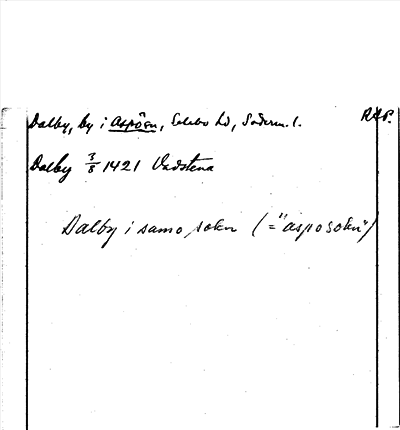 Dalby, by i Aspö sn, Selebo hd, Söderm. l. RAP.
Dalby 3/8 1421 Vadstena
Dalby i samo sokn (="aspo sokn")